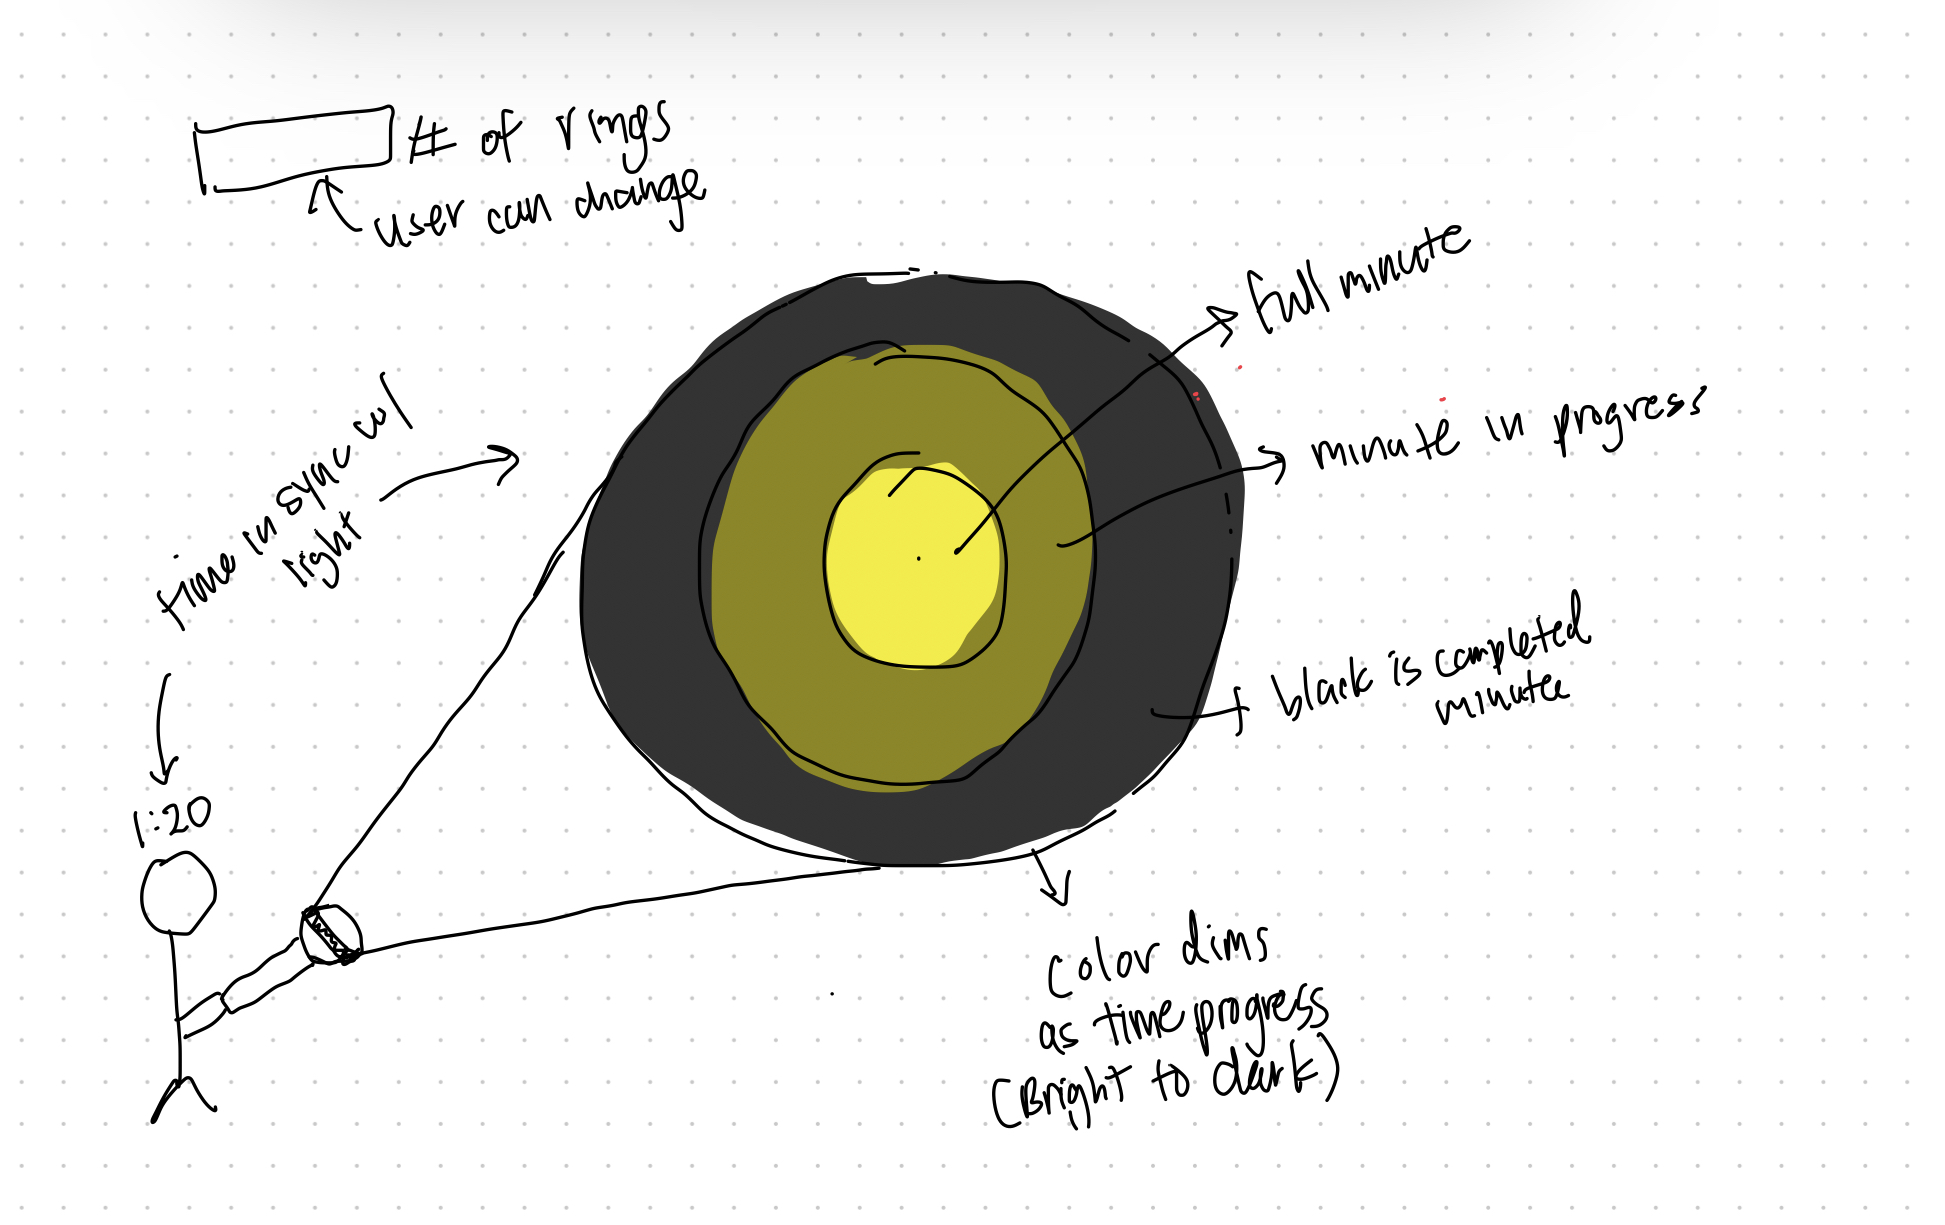 # of rings
user can change
full minute
minute in progress
time in sync w/
light
black is completed
minute
1:20
color dims
as time progress
(Bright to dark)